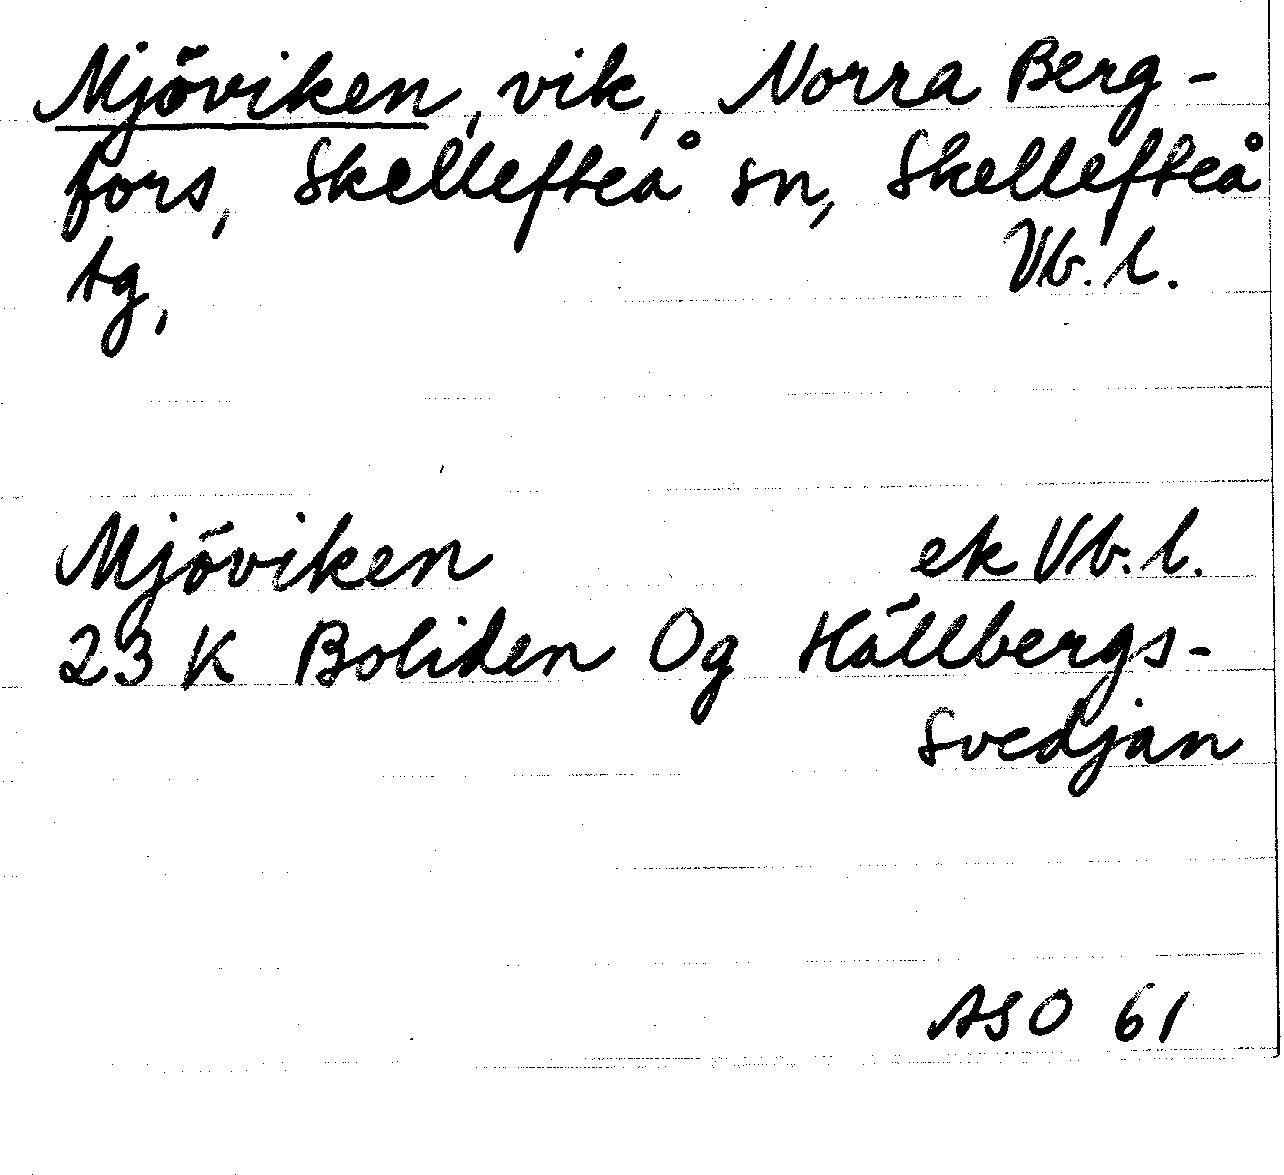 Mjöviken, vik, Norra Berg-
fors, Skellefteå sn, Skellefteå
tg, Vb. l.
Mjöviken ek Vb. l.
23 K Boliden Og Hällbergs-
svedjan
ASO 61